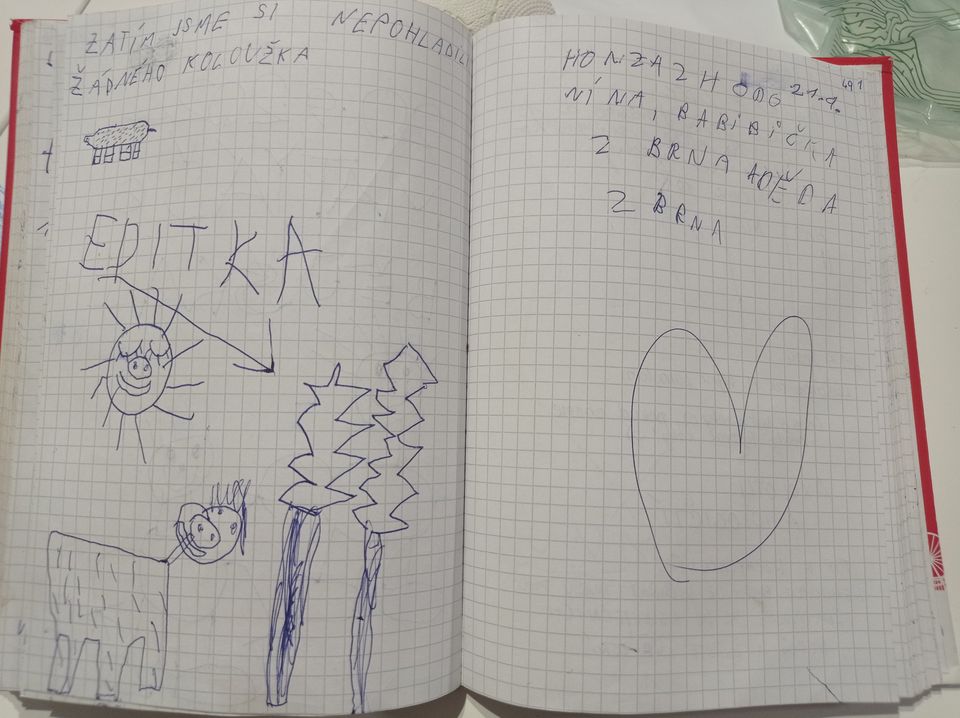 ZATÍM JSME SI NEPOHLADILI
ŽÁDNÉHO KOLOUŽKA
EDITKA
HONZA Z H 21.1.
NÍNA, BABIBIČKA
Z BRNA A DĚDA
Z BRNA